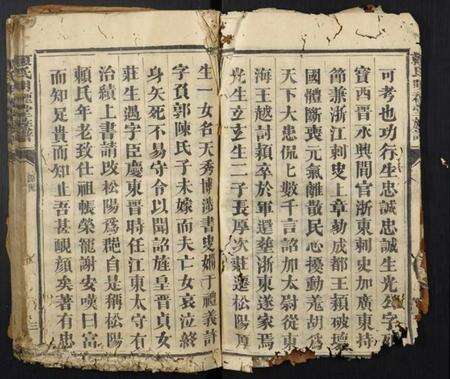 可考也功行生忠誠忠誠生光公字
寶西晉永興間官浙東刺史加廣東持
節兼浙江刺史上章勍成都王穎破壞
國體斷喪元氣離散民心擾動羗胡為
天下大患侃七數千言詔加太尉從東
海王越討穎卒於軍遷塟浙東遂家焉
光生玄玄生二子長厚次莊遷松陽厚
生一女名天秀博涉書史嫻于禮義許
字頁郭陳氏子未嫁而夫亡女哀泣終
身矢死不易守令以聞詔旌皇晉貞女
莊生遇字臣慶東晉時任江東太守有
治績上書請攺松陽為郡自是稱松陽
賴氏年老致仕祖帳榮寵謝安嘆曰富
而知足貴而知止吾甚靦顏矣著有忠